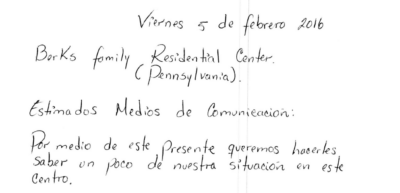 Viernes 5 de febrero 2016
Berks family Residential Center.
(Pennsylvania).
Estimados Medios de Comunicación:
Por medio de este presente queremos hacerles
saber un poco de nuestra situación en este
centro.